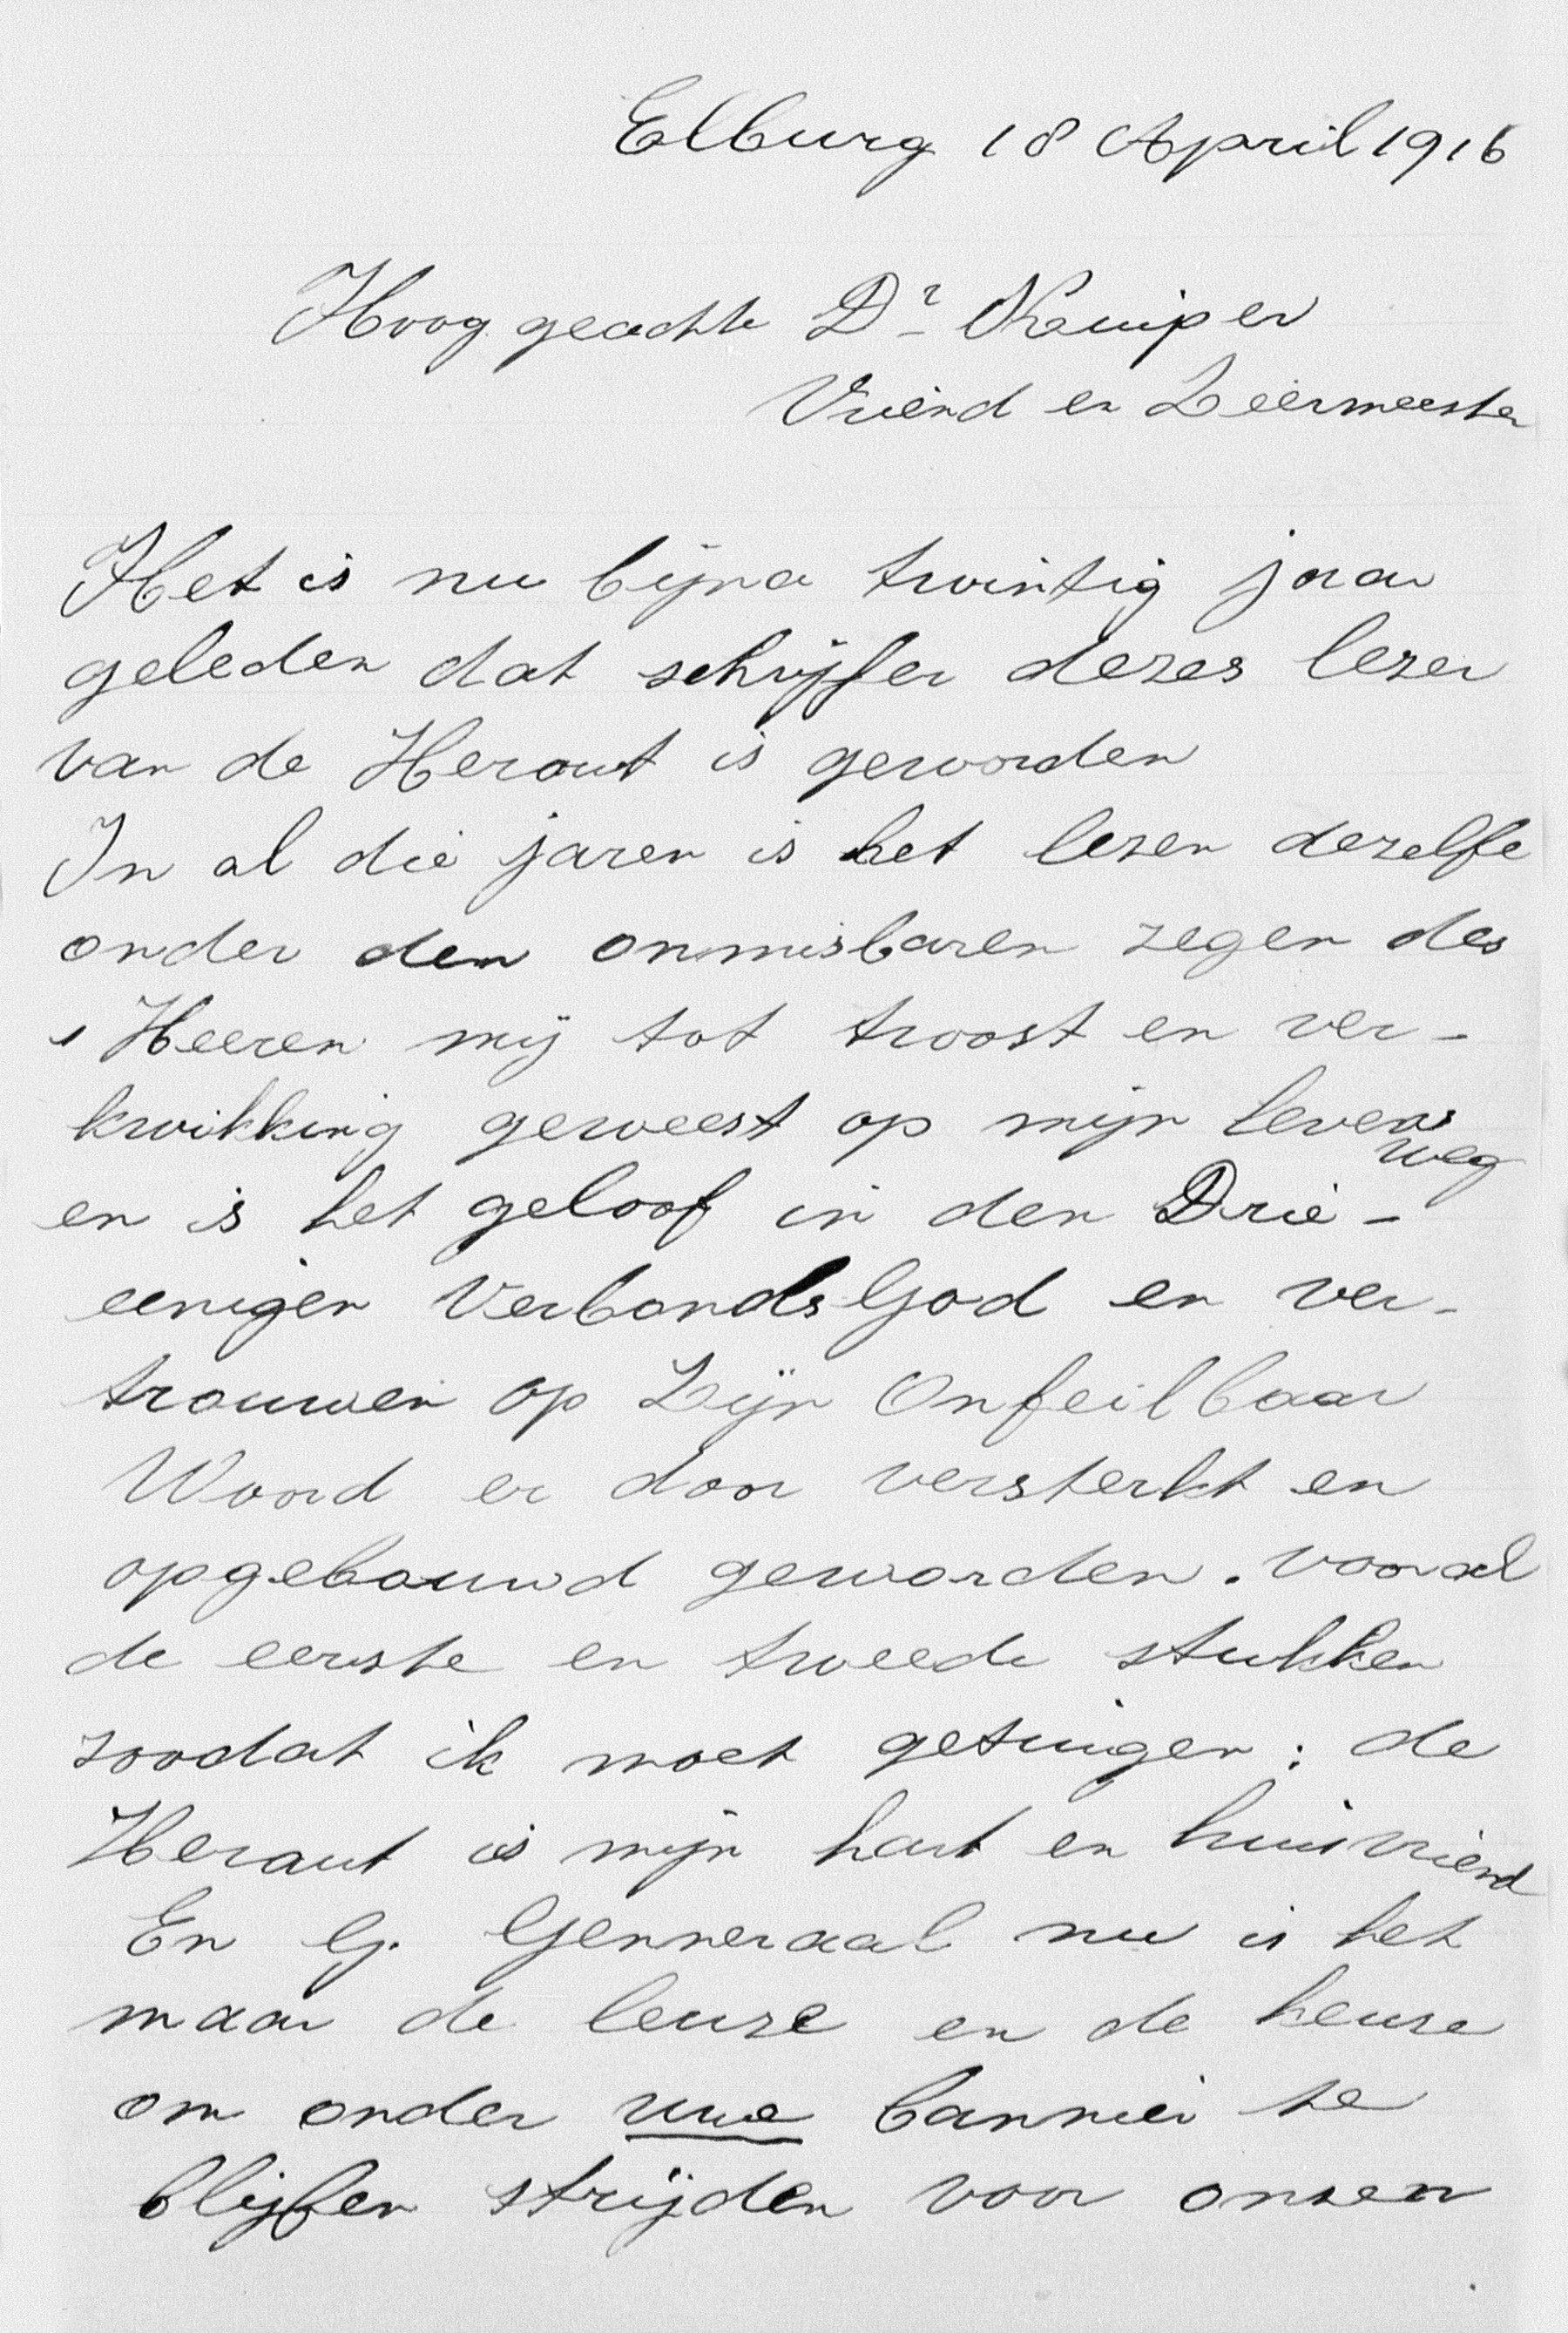 Elburg 18 April 1916
Hoog geachte Dr Kuiper
Vriend en Leermeester
Het is nu bijna twintig jaar
geleden dat schrijfer dezes lezer
van de Heraut is geworden
In al die jaren is het lezen dezelfe
onder den onmisbaren zegen des
Heeren mij tot troost en ver-
kwikking geweest op mijn levens
weg
en is het geloof in den Drie-
eenigen VerbondsGod en ver-
trouwen op Zijn Onfeilbaar
Woord er door versterkt en
opgebouwd geworden. vooral
de eerste en tweede stukken
zoodat ik moet getuigen: de
Heraut is mijn hart en huisvriend
En G. Genneraal nu is het
maar de leuze en de keuze
om onder uwe bannier te
blijfen strijden voor onzen